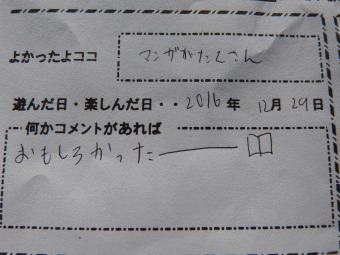 よかったよココ マンガがたくさん
遊んだ日・楽しんだ日・・2016年 12月29日
何かコメントがあれば
おもしろかったーー